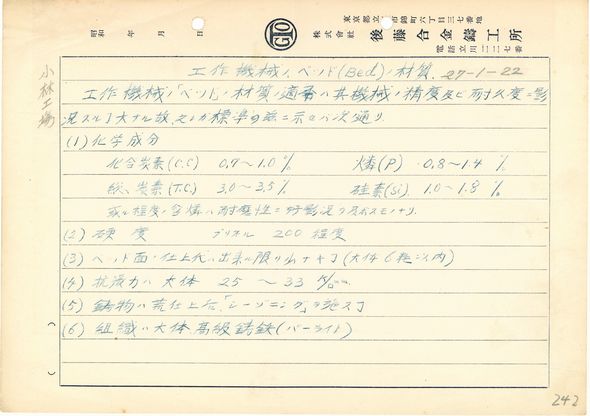 東京都立 市錦町六丁目三七番地
株式會社 後藤合金鑄工所
電話立川二二二七番
昭和 年 月 日
GTO
小林工場
工作機械ノベッド(Bed)ノ材質. 27-1-22
工作機械ノ「ベッド」ノ材質ノ適否ハ其機械ノ精度及ビ耐久度ニ影
况スルヿ大ナル故、 標準 茲ニ示セバ次ノ通リ
(1) 化学成分
化合炭素(C.C) 0.7〜1.0% 燐(P) 0.8〜1.4%
総炭素(T.C) 3.0〜3.5% 硅素(Si) 1.0〜1.8%
或ル程度ノ含燐ハ耐磨性ニ好影况ヲ及ボスモノナリ.
(2) 硬度 ブリネル 200 程度
(3) ベッド面ノ仕上代ハ出来ル限リ少ナキヿ(大体6粍以内)
(4) 抗張力ハ大体 25 〜 33
(5) 鋳物ハ荒仕上后「シーゾニング」ヲ施スヿ
(6) 組織ハ大体高級鋳鉄(パーライト)
242